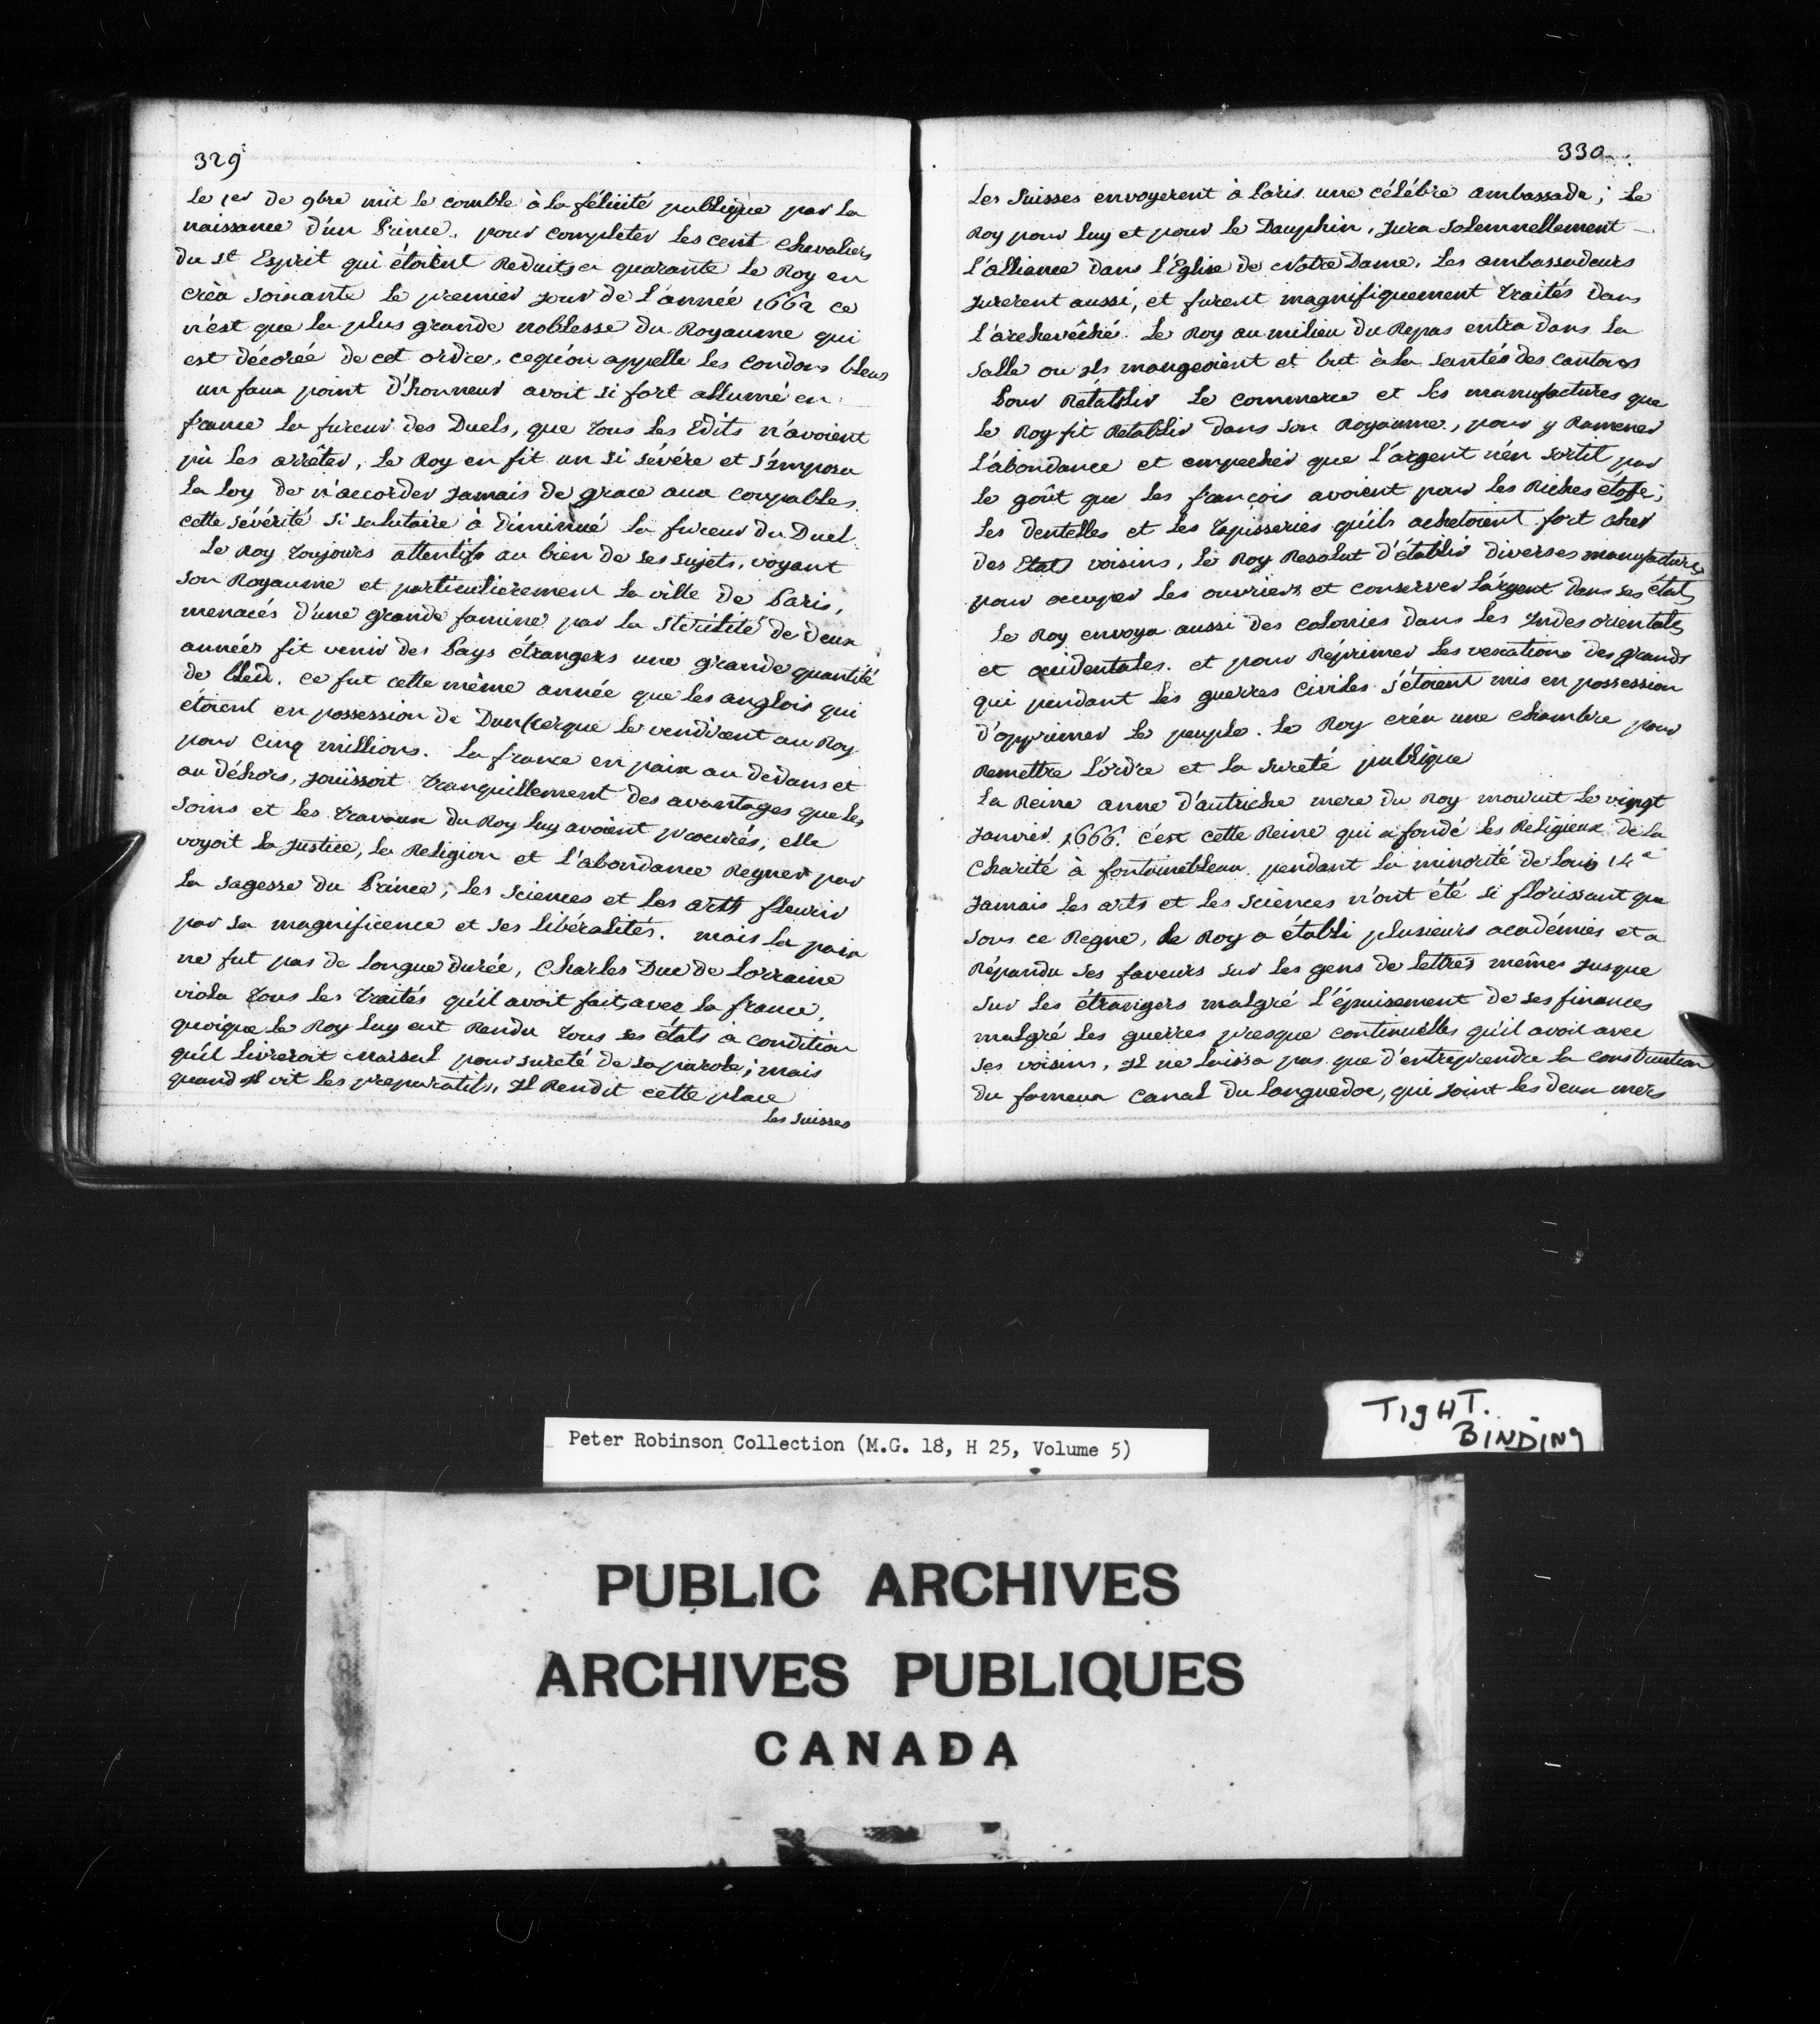 329
Le 1er de 9bre mit le comble à la félicité publique par la
naissance d'un Prince. pour completer les cent chevaliers
du st Esprit qui étoient Reduits a quarante le Roy en
créa soixante le premier jour de l'année 1662 ce
n'est que la plus grande noblesse du Royaume qui
est décorée de cet ordre, cequ'on appelle les Cordons bleus
un faux point d'honneur avoit si fort allumé en
france la fureur des Duels, que tous les Edits n'avoient
pû les arrêter, le Roy en fit un si sévére et s'imposa
la Loy de n'accorder jamais de grace aux coupables.
cette sévérité si salutaire à diminué la fureur du Duel
Le Roy toujours attentifs au bien de ses sujets, voyant
son Royaume et particulierement la ville de Paris,
menacés d'une grande famine par la stérilité de deux
années fit venir des Pays étrangers une grande quantité
de bled. ce fut cette même année que les anglois qui
étoient en possession de Dunkerque le vendirent au Roy
pour Cinq millions. La france en paix au dedans et
au déhors, jouissoit tranquillement des avantages que les
soins et les travaux du Roy luy avoient procurés, elle
voyoit la justice, la Religion et l'abondance Regner par
la sagesse du Prince, les sciences et les arts fleurir
par sa magnificence et ses libéralités. mais la paix
ne fut pas de longue durée, Charles Duc de Lorraine
viola tous les traités qu'il avoit fait avec la france,
quoique le Roy luy eut Rendu tous ses états à condition
qu'il livreroit Marsal pour sureté de sa parole; mais
quand il vit les preparatifs, il Rendit cette place
les suisses
330
Les Suisses envoyerent à Paris une célébre ambassade; Le
Roy pour luy et pour le Dauphin, jura solemnellement
l'alliance dans l'Eglise de Notre Dame. Les ambassadeurs
jurerent aussi, et furent magnifiquement traités dans
l'archevêché. Le Roy au milieu du Repas entra dans la
salle ou ils mangeoient et but à la santée des cantons
Pour Rétablir le commerce et les manufactures que
le Roy fit Retablir dans son Royaume, pour y Ramener
l'abondance et empecher que l'argent n'en sortit par
le goût que les françois avoient pour les Riches étofes,
les dentelles et les tapisseries qu'ils achetoient fort cher
des Etats voisins, le Roy Resolut d'établir diverses manufactures
pour occuper les ouvriers et conserver l'argent dans ses états
Le Roy envoya aussi des colonies dans les Indes orientales
et occidentales. et pour Réprimer les vexations des grands
qui pendant les guerres Civiles s'étoient mis en possession
d'opprimer le peuple. Le Roy créa une chambre pour
Remettre l'ordre et la sureté publique
La Reine anne d'autriche mere du Roy mourut le vingt
janvier 1666. c'est cette Reine qui a fondé les Religieux de la
Charité à fontainebleau pendant la minorité de Louis 14e
jamais les arts et les sciences n'ont été si florissant que
sous ce Regne, le Roy a établi plusieurs académies et a
Répandu ses faveurs sur les gens de lettres mêmes jusque
sur les étrangers malgré l'épuisement de ses finances
malgré les guerres presque continuelles qu'il avoit avec
ses voisins, il ne laissa pas que d'entreprendre la construction
du fameux Canal du Languedoc, qui joint les deux mers
TIGHT.
BINDING
Peter Robinson Collection (M.G. 18, H 25, Volume 5)
PUBLIC ARCHIVES
ARCHIVES PUBLIQUES
CANADA